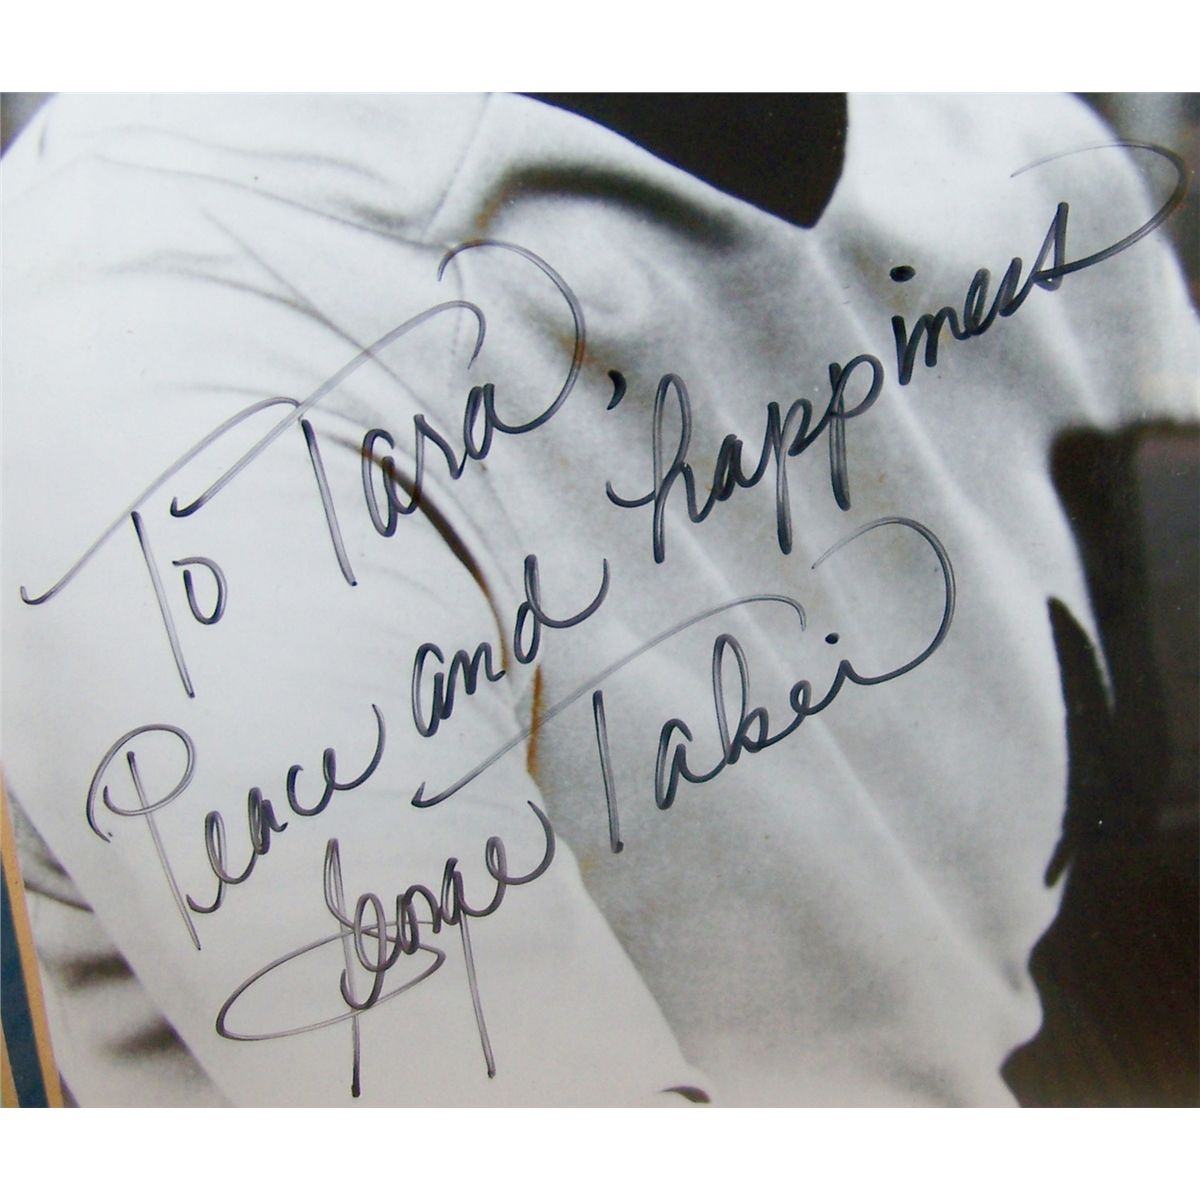 To Tara,
Peace and happiness
George Takei